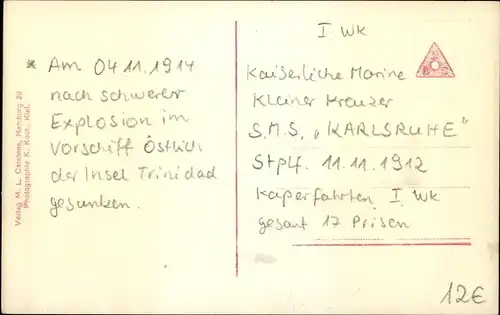 Verlag M. L. Carstens, Hamburg 23
Photographie K. Koch, Kiel.
* Am 04.11.1914
nach schwerer
Explosion im
Vorschiff Östlich
der Insel Trinidad
gesunken.
I Wk
Kaiserliche Marine
Kleiner Kreuzer
S.M.S. „KARLSRUHE"
Stplf. 11.11.1912
Kaperfahrten I. Wk
gesamt 17 Prisen
12€